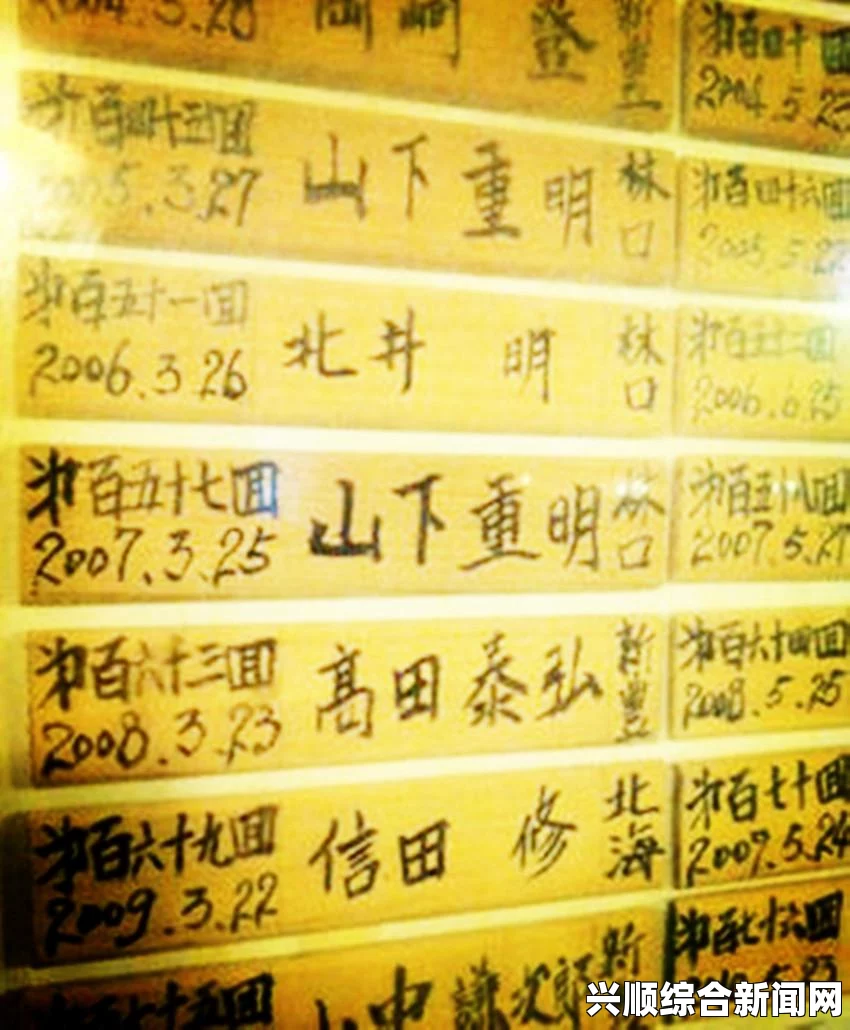 2004.3.28 岡崎 登 新豊
第百四十回
2004.5.23
第百四十五回 山下重明 林口
2005.3.27
第百四十六回
2005.5.22
第百五十一回 北井 明 林口
2006.3.26
第百五十二回
2006.6.25
第百五十七回 山下重明 林口
2007.3.25
第百五十八回
2007.5.27
第百六十三回 髙田泰弘 新豊
2008.3.23
第百六十四回
2008.5.25
第百六十九回 信田 修 北海
2009.3.22
第百七十回
2009.5.24
第百七十五回 山中謙次郎 新
第百七十六回
兴顺综合新闻网